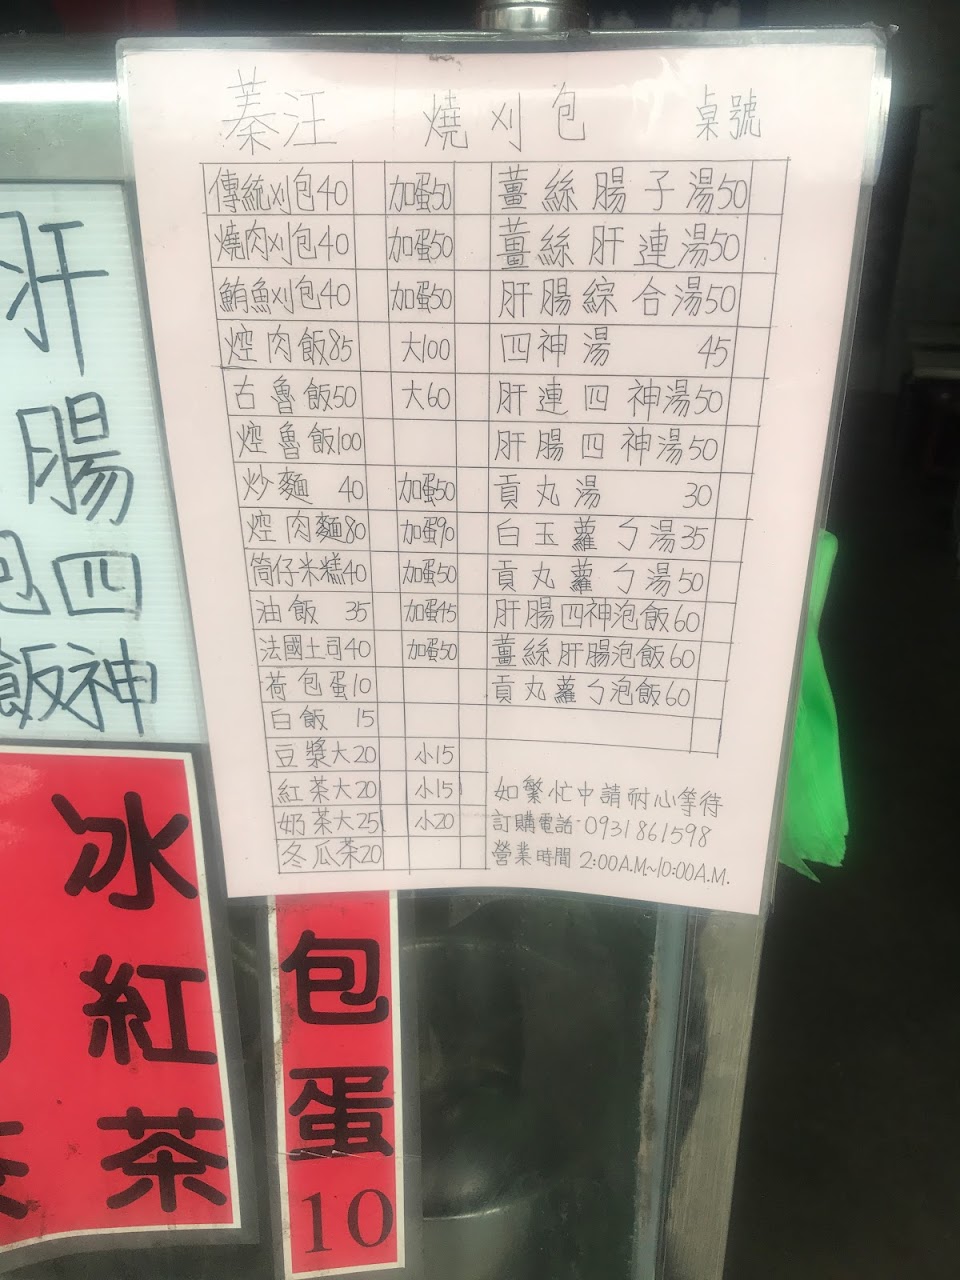 蓁汪 燒刈包 桌號
傳統刈包40 加蛋50 薑絲腸子湯50
燒肉刈包40 加蛋50 薑絲肝連湯50
鮪魚刈包40 加蛋50 肝腸綜合湯50
焢肉飯85 大100 四神湯 45
古魯飯50 大60 肝連四神湯50
焢魯飯100 肝腸四神湯50
炒麵 40 加蛋50 貢丸湯 30
焢肉麵80 加蛋90 白玉蘿ㄅ湯35
筒仔米糕40 加蛋50 貢丸蘿ㄅ湯50
油飯 35 加蛋45 肝腸四神泡飯60
法國土司40 加蛋50 薑絲肝腸泡飯60
荷包蛋10 貢丸蘿ㄅ泡飯60
白飯 15
豆漿大20 小15
紅茶大20 小15
奶茶大25 小20
冬瓜茶20
如繁忙中請耐心等待
訂購電話·0931861598
營業時間 2:00A.M.~10:00A.M.
肝腸
四神
泡飯
冰紅茶
包蛋10